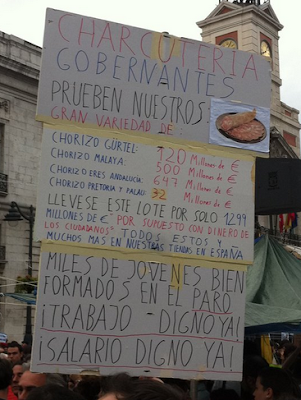 CHARCUTERIA
GOBERNANTES
PRUEBEN NUESTROS:
GRAN VARIEDAD DE:
CHORIZO GÜRTEL: 120 Millones de €
CHORIZO MALAYA: 500 Millones de €
CHORIZO ERES ANDALUCIA: 647 Millones de €
CHORIZO PRETORIA Y PALAU: 32 Millones de €
LLEVESE ESTE LOTE POR SOLO 1299
MILLONES DE € POR SUPUESTO CON DINERO DE
LOS CIUDADANOS TODOS ESTOS Y
MUCHOS MAS EN NUESTRAS TIENDAS EN ESPAÑA
MILES DE JOVENES BIEN
FORMADOS EN EL PARO
¡TRABAJO - DIGNO YA!
¡SALARIO DIGNO YA!